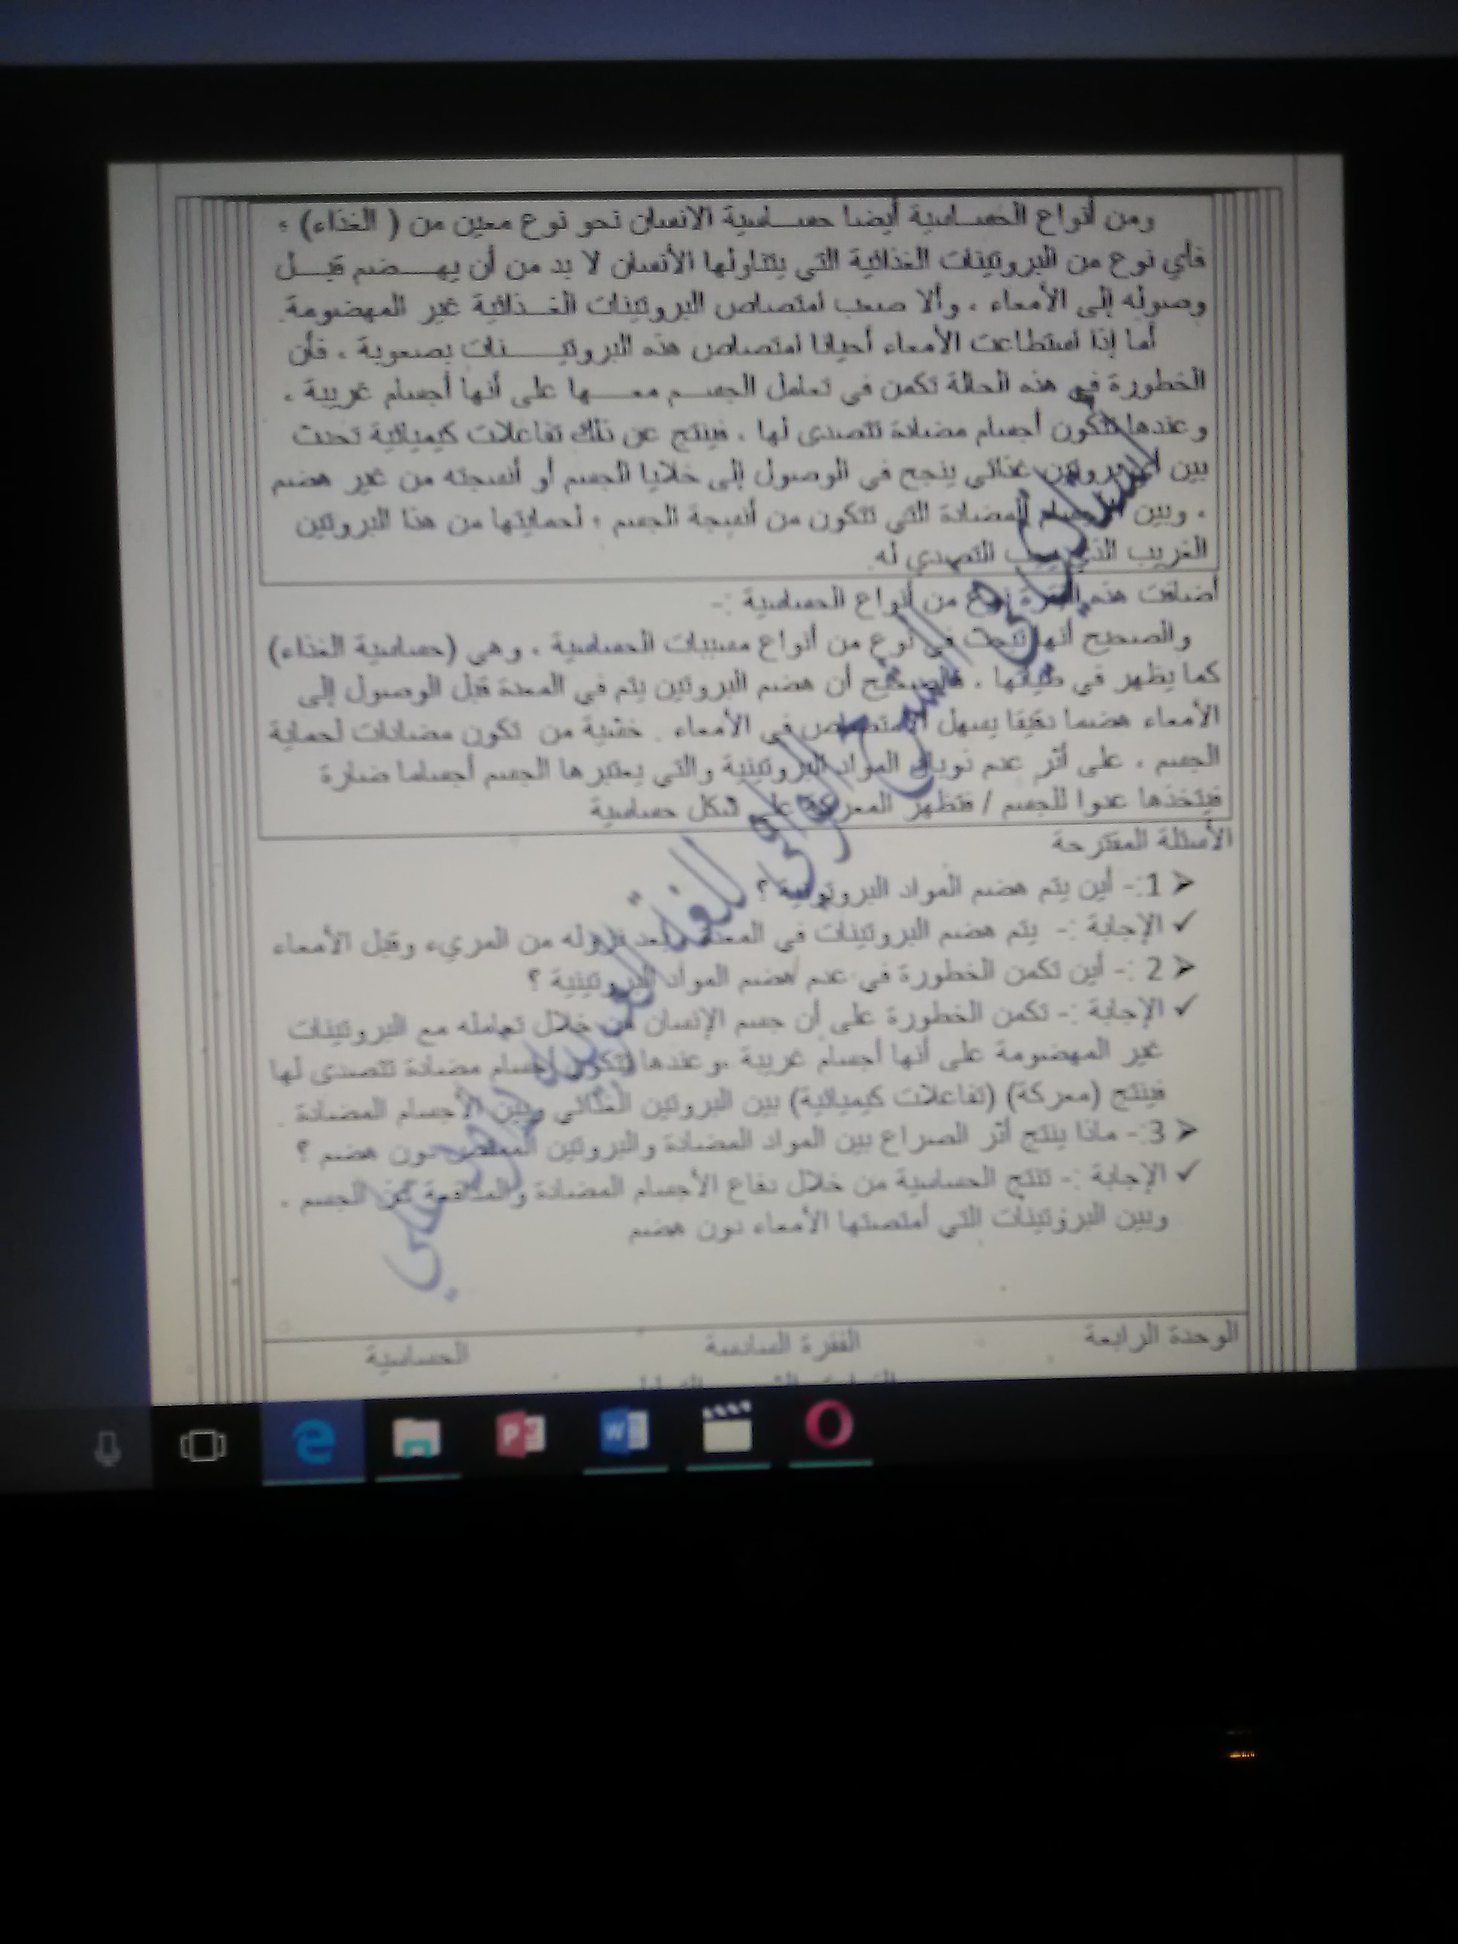 ومن أنواع الحساسية أيضا حساسية الانسان نحو نوع معين من ( الغذاء) ؛
فأي نوع من البروتينات الغذائية التي يتناولها الأنسان لا بد من أن يهضم قبل
وصوله إلى الأمعاء ، وألا صعب امتصاص البروتينات الغذائية غير المهضومة.
أما إذا استطاعت الأمعاء أحيانا امتصاص هذه البروتينات بصعوبة ، فأن
الخطورة في هذه الحالة تكمن في تعامل الجسم معها على أنها أجسام غريبة ،
وعندها تتكون أجسام مضادة تتصدى لها ، فينتج عن ذلك تفاعلات كيميائية تحدث
بين أي بروتين غذائي ينجح في الوصول إلى خلايا الجسم أو أنسجته من غير هضم
، وبين الأجسام المضادة التي تتكون من أنسجة الجسم ؛ لحمايتها من هذا البروتين
الغريب الذي يجب التصدي له.
أضافت هذه الفقرة نوع من أنواع الحساسية :-
والصحيح أنها تبحث في نوع من أنواع مسببات الحساسية ، وهي (حساسية الغذاء)
كما يظهر في طياتها ، فالصحيح أن هضم البروتين يتم في المعدة قبل الوصول إلى
الأمعاء هضما دقيقا يسهل الامتصاص في الأمعاء . خشية من تكون مضادات لحماية
الجسم ، على أثر عدم ذوبان المواد البروتينية والتي يعتبرها الجسم أجساما ضارة
فيتخذها عدوا للجسم / فتظهر المعركة على شكل حساسية
الأسئلة المقترحة
➤ 1:- أين يتم هضم المواد البروتينية ؟
✓ الإجابة :- يتم هضم البروتينات في المعدة بعد نزوله من المريء وقبل الأمعاء
➤ 2 :- أين تكمن الخطورة في عدم هضم المواد البروتينية ؟
✓ الإجابة :- تكمن الخطورة على أن جسم الإنسان من خلال تعامله مع البروتينات
غير المهضومة على أنها أجسام غريبة ،وعندها تتكون أجسام مضادة تتصدى لها
فينتج (معركة) (تفاعلات كيميائية) بين البروتين الغذائي وبين الأجسام المضادة .
➤ 3:- ماذا ينتج أثر الصراع بين المواد المضادة والبروتين دون هضم ؟
✓ الإجابة :- تنتج الحساسية من خلال دفاع الأجسام المضادة والمدافعة عن الجسم ،
وبين البروتينات التي أمتصتها الأمعاء دون هضم
الوحدة الرابعة الفقرة السادسة الحساسية